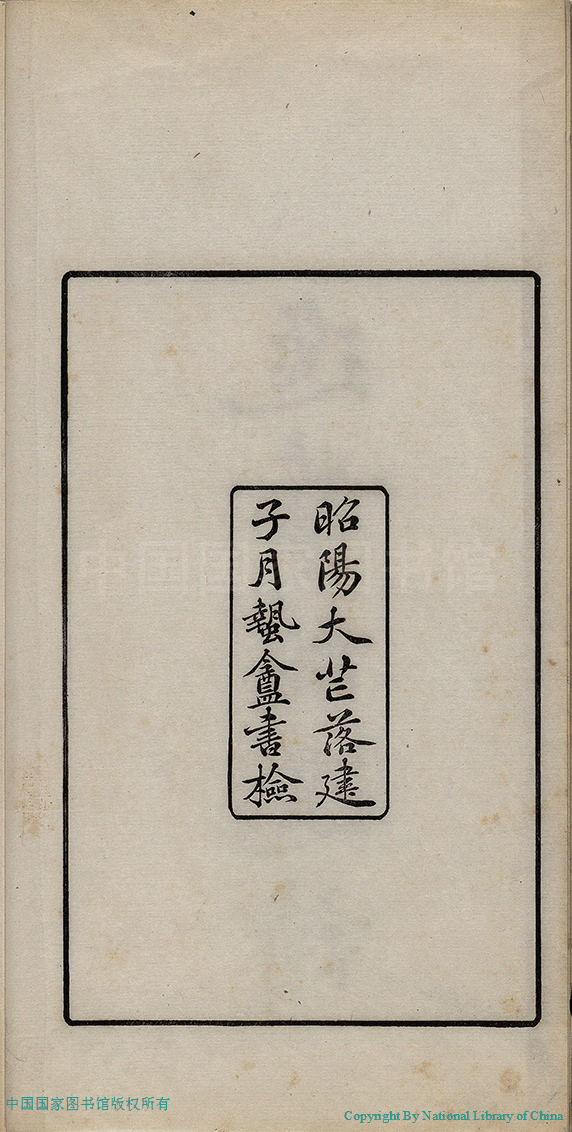 昭陽大芒落建
子月蟄盦書檢
中国国家图书馆
中国国家图书馆版权所有
Copyright By National Library of China